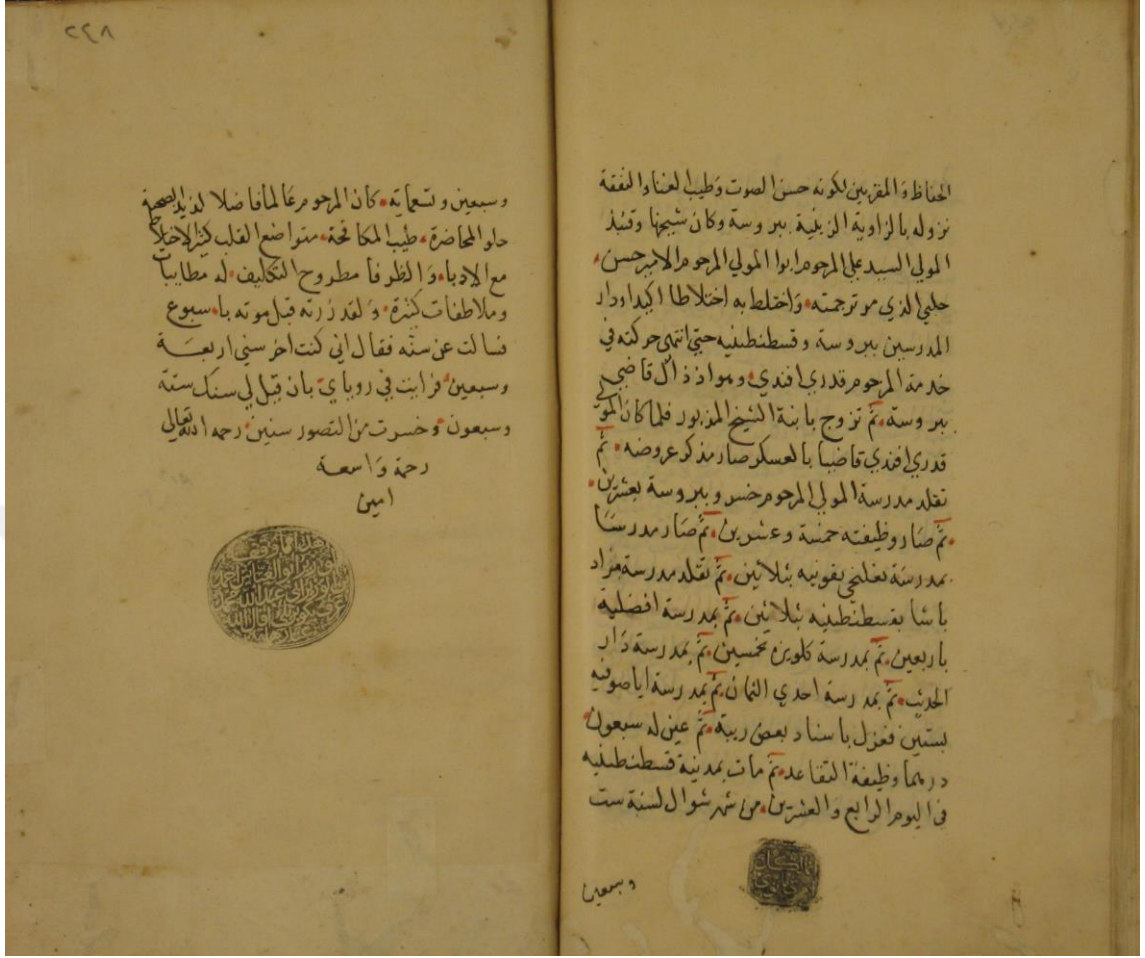 الحفاظ والمقربين لكونه حسن الصوت وطيب الغناء والنفقة
نزوله بالزاوية الزينية ببروسة وكان شيخها وقتئذ
المولي السيد علي المرحوم ابوا المولي المرحوم الامير حسن
حلبي الذي مر ترجمته واختلط به اختلاطا اكيدا ودار
المدرسين ببروسة وقسطنطينيه حتي انتهى حركته في
خدمة المرحوم قدري افندي وهو اذ ذاك قاضي
ببروسة ثم تزوج بابنة الشيخ المذبور فلما كان المولي
قدري افندي قاضيا بالعسكر صار مذكر عروضه ثم
تقلد مدرسة المولي المرحوم خسرو ببروسة بعشرين
ثم صار وظيفته خمسة وعشرين ثم صار مدرسا
بمدرسة بقونيه بثلاثين ثم تقلد مدرسة مراد
باشا بقسطنطينيه بثلاثين ثم بمدرسة افضلية
باربعين ثم بمدرسة كلويزه بخمسين ثم بمدرسة دار
الحديث ثم بمدرسة احدي الثمان ثم بمدرسة اياصوفيه
بستين فعزل باسناد بعض ريبة ثم عين له سبعون
درهما وظيفة التقاعد ثم مات بمدينة قسطنطينيه
في اليوم الرابع والعشرين من شهر شوال لسنة ست
وسبعين
٢٤٨
وسبعين وتسعماية كان المرحوم عالما فاضلا لذيذ الصحبة
حلو المحاضرة طيب المكالحة متواضع القلب كثير الاختلاط
مع الادبا والظرفا مطروح التكليف له مطايبات
وملاطفات كثيرة ولقد زرته قبل موته باسبوع
فسالت عن سنه فقال اني كنت اخر سني اربعة
وسبعين فرايت في روياي بان قيل لي سنك ستة
وسبعون وخسرت من التصور سنين رحمه الله تعالي
رحمة واسعة
امين